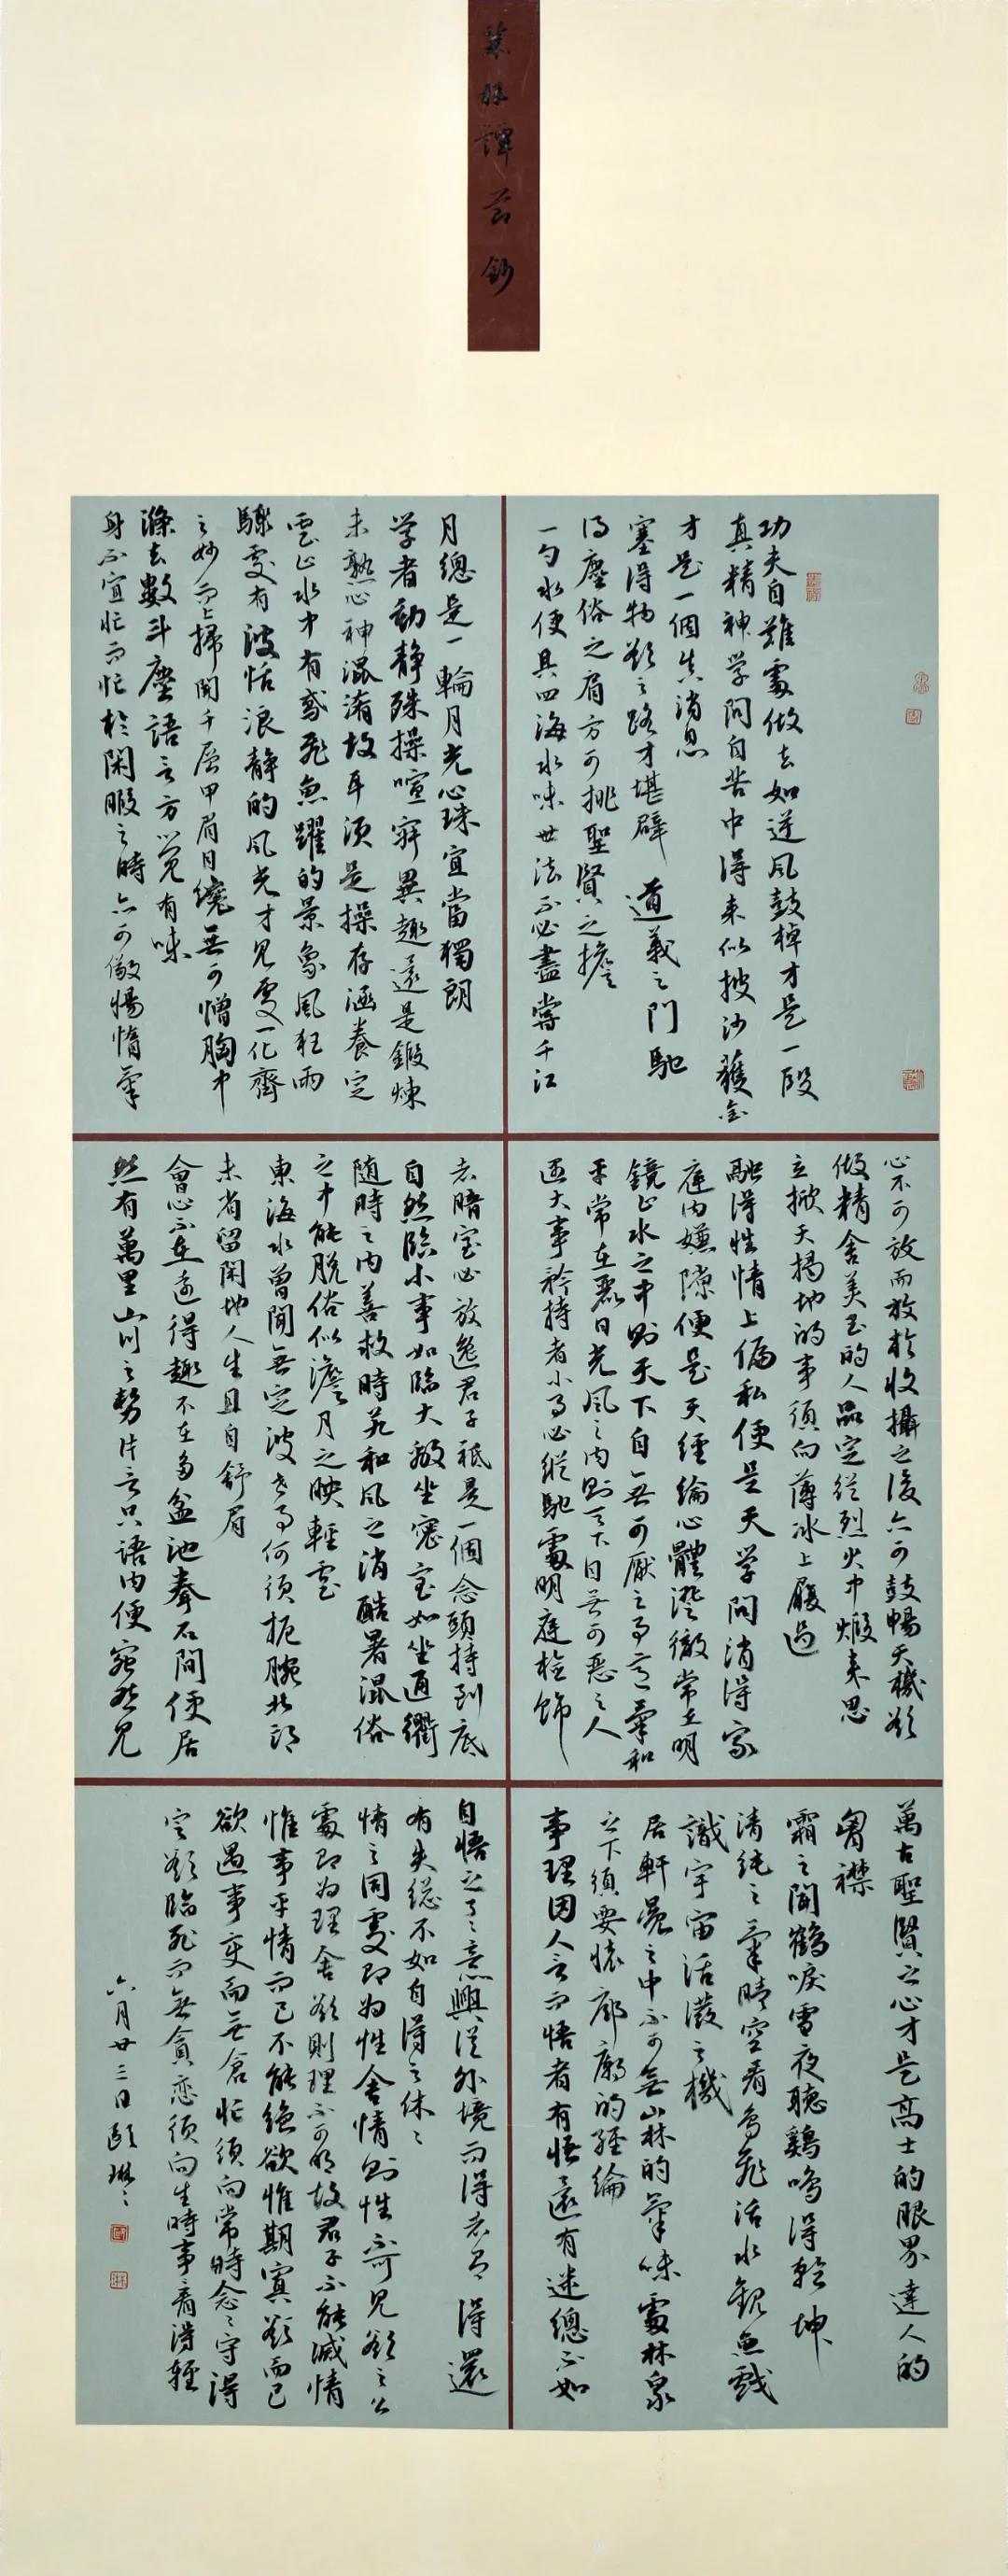 菜根譚節鈔
功夫自難處做去如逆風鼓棹才是一段
真精神学問自苦中得來似披沙獲金
才是一個真消息
塞得物欲之路才堪闢道義之門馳
得塵俗之肩方可挑聖賢之擔
一勺水便具四海水味世法不必盡嘗千江
月總是一輪月光心珠宜當獨朗
学者動静殊操喧寂異趣還是鍛煉
未熟心神混淆故耳須是操存涵養定
雲止水中有鳶飛魚躍的景象風狂雨
驟處有波恬浪静的風光才見處一化齊
之妙面上掃開千層甲眉目纔無可憎胸中
滌去數斗塵語言方覺有味
身不宜忙而忙於閑暇之時亦可儆惕惰氣
心不可放而放於收攝之後亦可鼓暢天機欲
做精金美玉的人品定從烈火中煅來思
立掀天揭地的事須向薄冰上履過
融得性情上偏私便是天学問消得家
庭内嫌隙便是天經綸心體澄徹常在明
鏡止水之中則天下自無可厭之事意氣和
平常在麗日光風之内則天下自無可惡之人
遇大事矜持者小事必縱馳處明庭檢飾
者暗室必放逸君子祗是一個念頭持到底
自然臨小事如臨大敵坐密室如坐通衢
随時之内善救時若和風之消酷暑混俗
之中能脱俗似澹月之映輕雲
東海水曾聞無定波世事何須扼腕北邙
未省留閑地人生且自舒眉
會心不在遠得趣不在多盆池拳石間便居
然有萬里山川之勢片言只語内便宛然見
萬古聖賢之心才是高士的眼界達人的
胸襟
霜之聞鶴唳雪夜聽鷄鳴得乾坤
清純之氣晴空看鳥飛活水觀魚戲
識宇宙活潑之機
居軒冕之中不可無山林的氣味處林泉
之下須要懷廊廟的經綸
事理因人言而悟者有悟還有迷總不如
自悟之了了意興從外境而得者有得還
有失總不如自得之休休
情之同處即為性舍情則性不可見欲之公
處即為理舍欲則理不可明故君子不能滅情
惟事平情而已不能絶欲惟期寡欲而已
欲遇事變而無倉忙須向常時念念守得
定欲臨死而無貪戀須向生時事事看得輕
六月廿三日